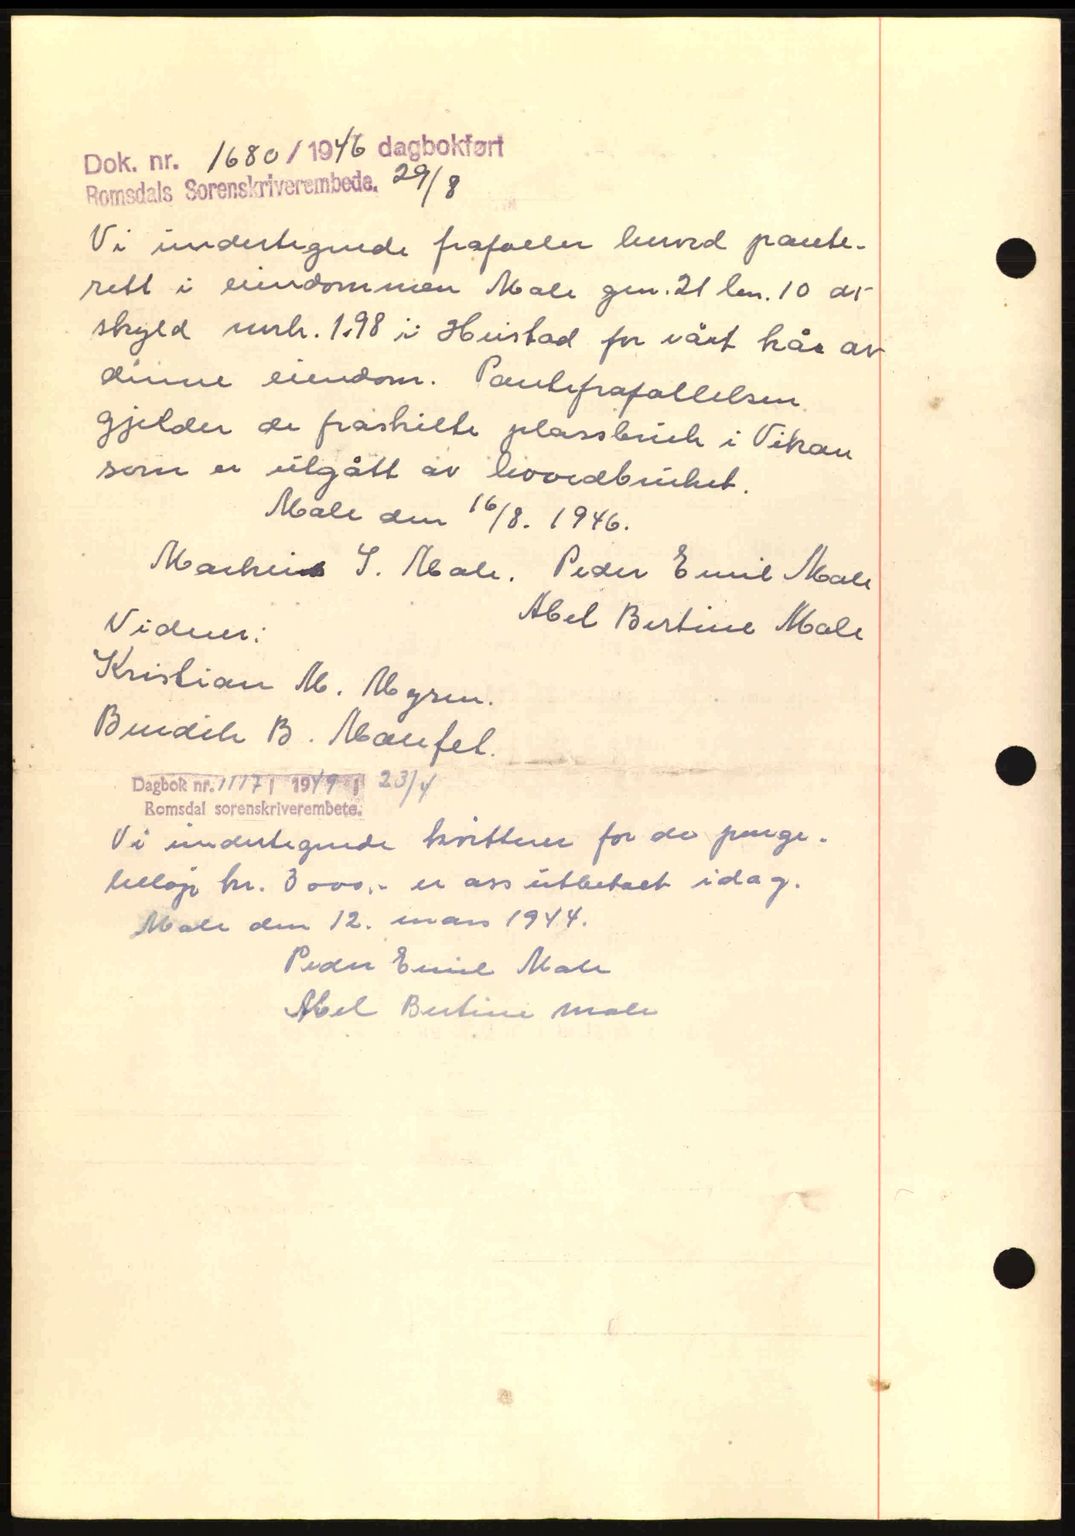 Dok. nr. 1680 / 1946 dagbokført
Romsdals Sorenskriverembede. 29/8
Vi undertegnede frafaller herved pante-
rett i eiendommen Male gnr. 21 bnr. 10 av
skyld mrk. 1.98 i Hustad for vårt kår av
denne eiendom. Pantefrafallelsen
gjelder de fraskilte plassbruk i Vikan
som er utgått av hovedbruket.
Male den 16/8. 1946.
Markus I. Male. Peder Emil Male
Abel Bertine Male
Vidner:
Kristian M. Myren.
Bendik B. 
Dagbok nr. 1117 / 1949 23/4
Romsdal sorenskriverembete.
Vi undertegnede kvitterer for de penge-
beløp kr. 3000,- er oss utbetalt idag.
Male den 12. mars 1944.
Peder Emil Male
Abel Bertine Male